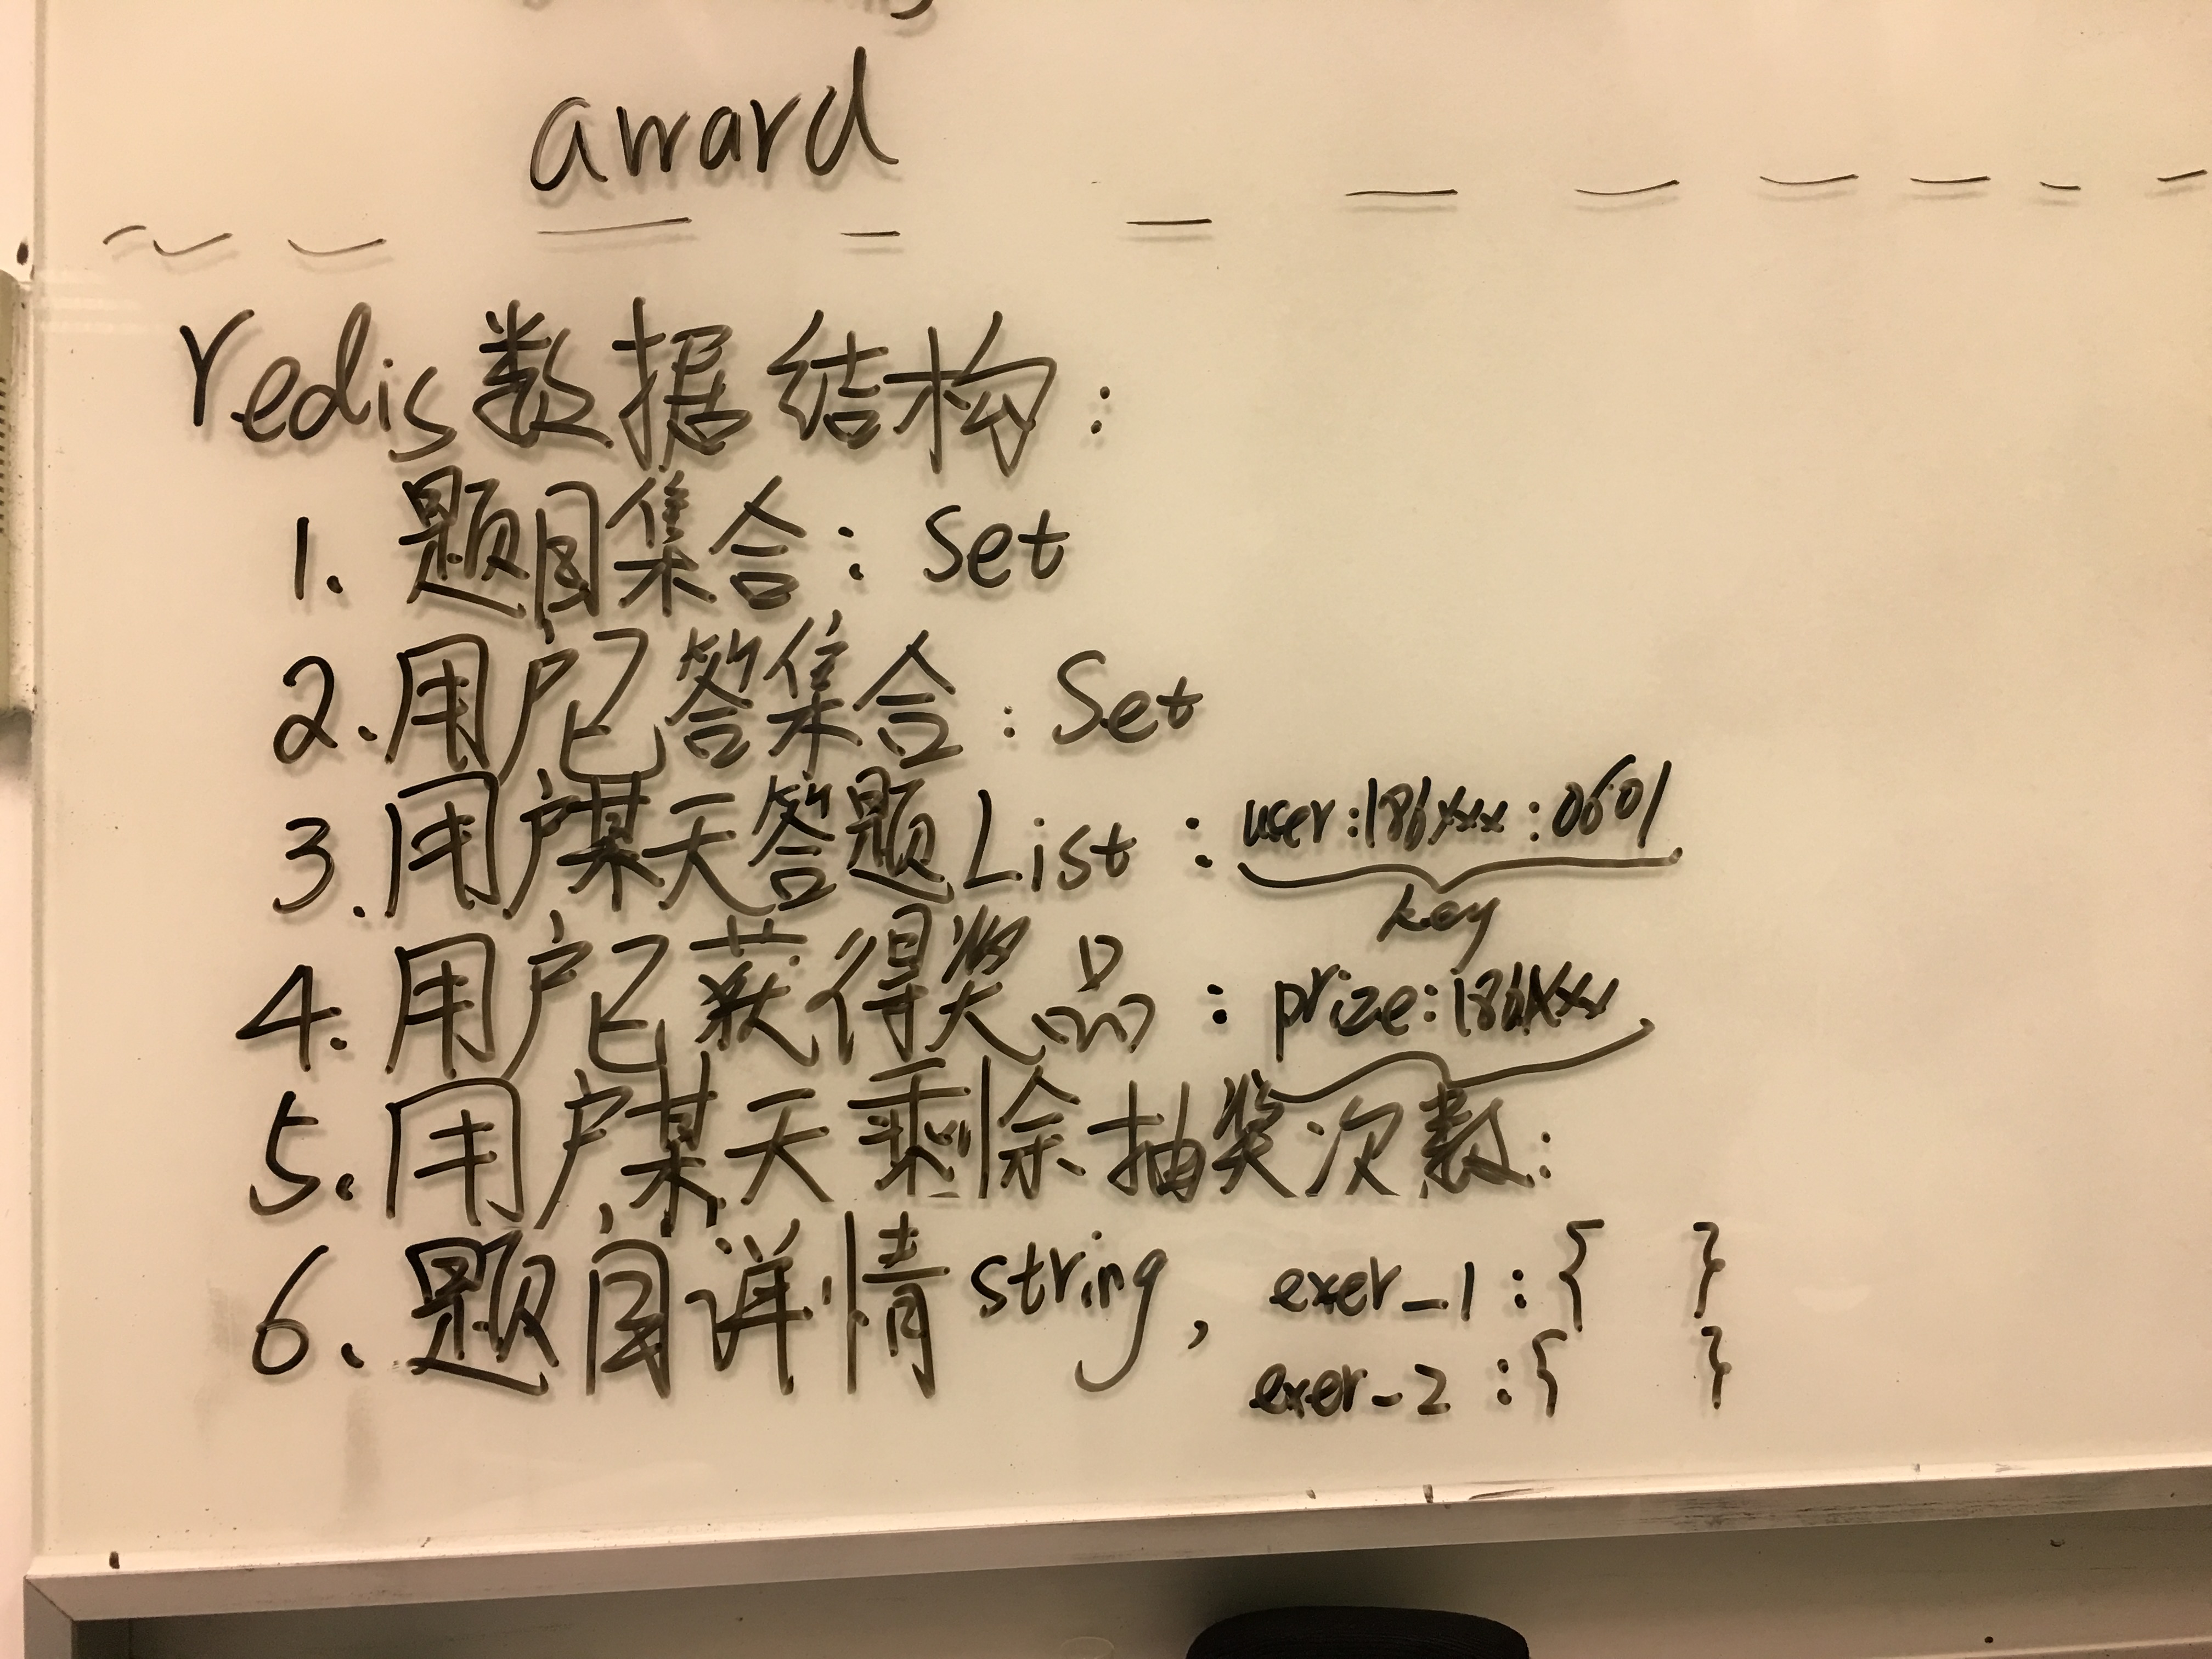 award
redis数据结构：
1. 题目集合：Set
2. 用户已答集合：Set
3. 用户某天答题List：user:186xxx:0601
key
4. 用户已获得奖品：prize:186xxx
5. 用户某天剩余抽奖次数：
6. 题目详情string，exer_1：{ }
exer_2：{ }